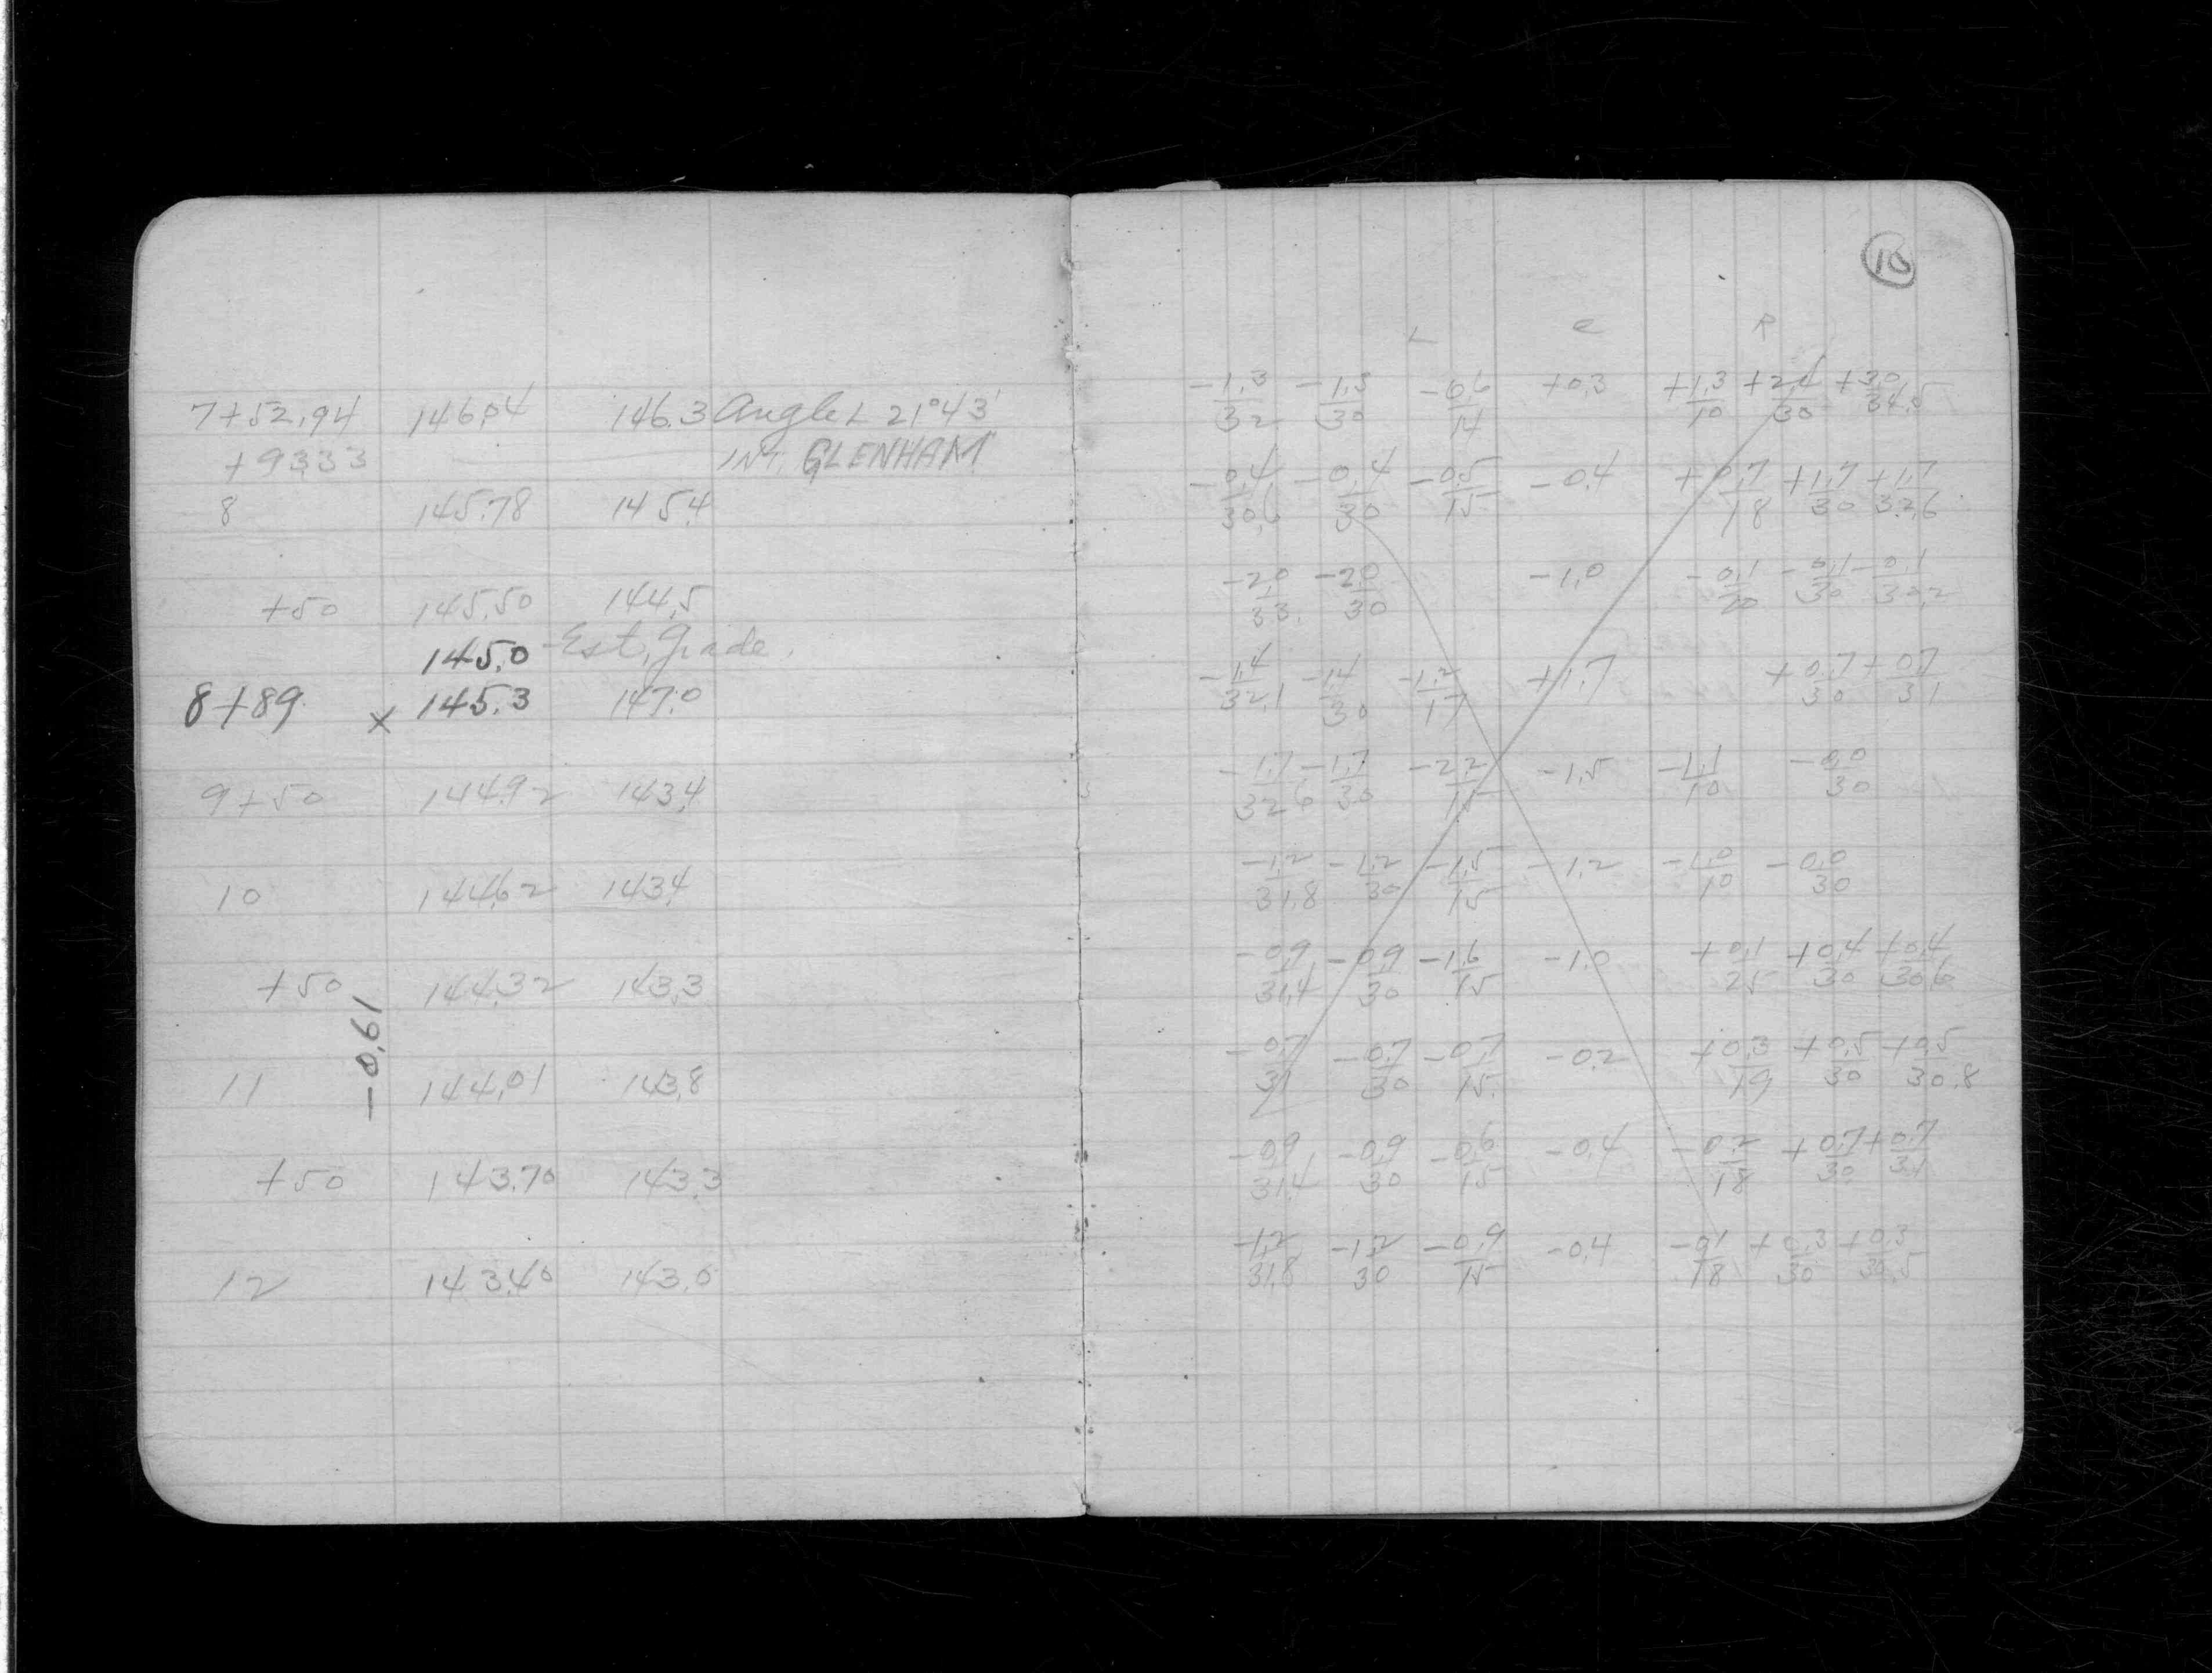 7+52.94 146.04 146.3 Angle L 21°43'
+93.33 INT. GLENHAM
8 145.78 145.4
+50 145.50 144.5
145.0 Est. Grade.
8+89 x 145.3 147.0
9+50 144.92 143.4
10 144.62 143.4
+50 144.32 143.3
-0.61
11 144.01 143.8
+50 143.70 143.3
12 143.40 143.0
10
L C R
-1.3 -1.3 -0.6 +0.3 +1.3 +2.4 +3.0
32 30 14 10 30 34.5
-0.4 -0.4 -0.5 -0.4 +0.7 +1.7 +1.7
30.6 30 15 18 30 32.6
-2.0 -2.0 -1.0 -0.1 -0.1 -0.1
33. 30 20 30 30.2
-1.4 -1.4 -1.2 +1.7 +0.7 +0.7
32.1 30 17 30 31
-1.7 -1.7 -2.2 -1.5 -1.1 -0.0
32.6 30 15 10 30
-1.2 -1.2 -1.5 -1.2 -1.0 -0.0
31.8 30 15 10 30
-0.9 -0.9 -1.6 -1.0 +0.1 +0.4 +0.4
31.4 30 15 25 30 30.6
-0.7 -0.7 -0.7 -0.2 +0.3 +0.5 +0.5
31 30 15. 19 30 30.8
-0.9 -0.9 -0.6 -0.4 -0.2 +0.7 +0.7
31.4 30 15 18 30 31
-1.2 -1.2 -0.9 -0.4 -0.1 +0.3 +0.3
31.8 30 15 18 30 30.5